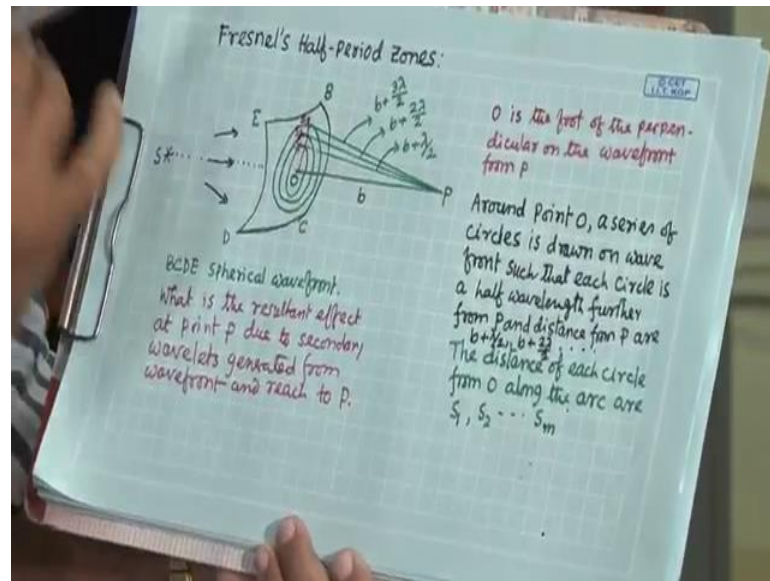 Fresnel's Half-Period Zones:
© CET
I.I.T. KGP
B
E
S*
b+3λ/2
b+2λ/2
b+λ/2
O
b
P
C
D
BCDE spherical wavefront.
What is the resultant effect
at point P due to secondary
wavelets generated from
wavefront and reach to P.
O is the foot of the perpen-
dicular on the wavefront
from P
Around point O, a series of
circles is drawn on wave
front such that each circle is
a half wavelength further
from P and distance from P are
b+λ/2, b+2λ/2, ....
The distance of each circle
from O along the arc are
S1, S2 --- Sm